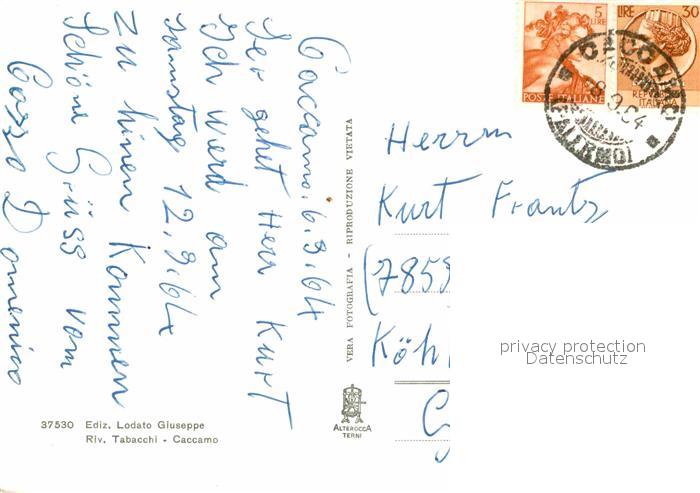 Caccamo. 6.9.64
Ser gehet Herr Kurt
Ich werd am
Samstag 12.9.64
Zu hinen Kommen
Schöne Grüss vom
Cozzo Domenico
Herrn
Kurt Frantz
(7859
Köh
VERA FOTOGRAFIA - RIPRODUZIONE VIETATA
ALTEROCCA
TERNI
37530 Ediz. Lodato Giuseppe
Riv. Tabacchi - Caccamo
5
LIRE
POSTE ITALIANE
LIRE 30
REPUBBLICA
ITALIANA
CACCAMO
8.9.64
(PALERMO)
privacy protection
Datenschutz